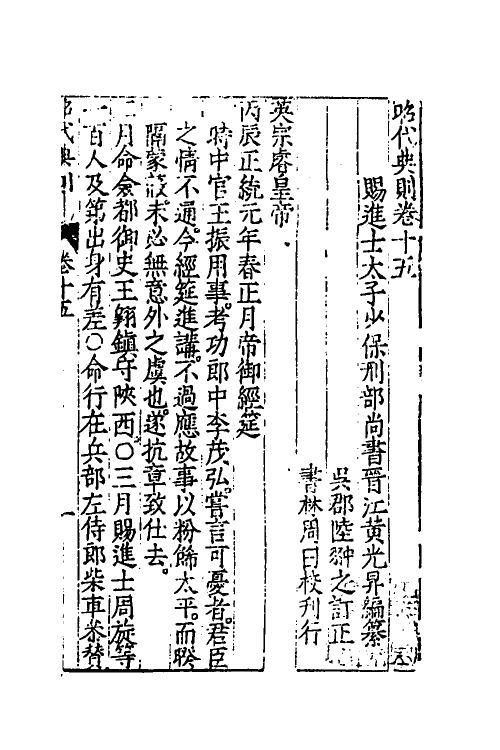 昭代典則卷十五
賜進士太子少保刑部尚書晉江黃光昇編纂
吳郡陸翀之訂正
書林周曰校刊行
英宗睿皇帝
丙辰正統元年春正月帝御經筵
時中官王振用事考功郎中李茂弘嘗言可憂者君臣
之情不通今經筵進講不過應故事以粉餙太平而暌
隔蒙蔽未必無意外之虞也遂抗章致仕去
二月命僉都御史王翱鎮守陜西〇三月賜進士周旋等
一百人及第出身有差〇命行在兵部左侍郎柴車叅贊
昭代典則 卷十五 一